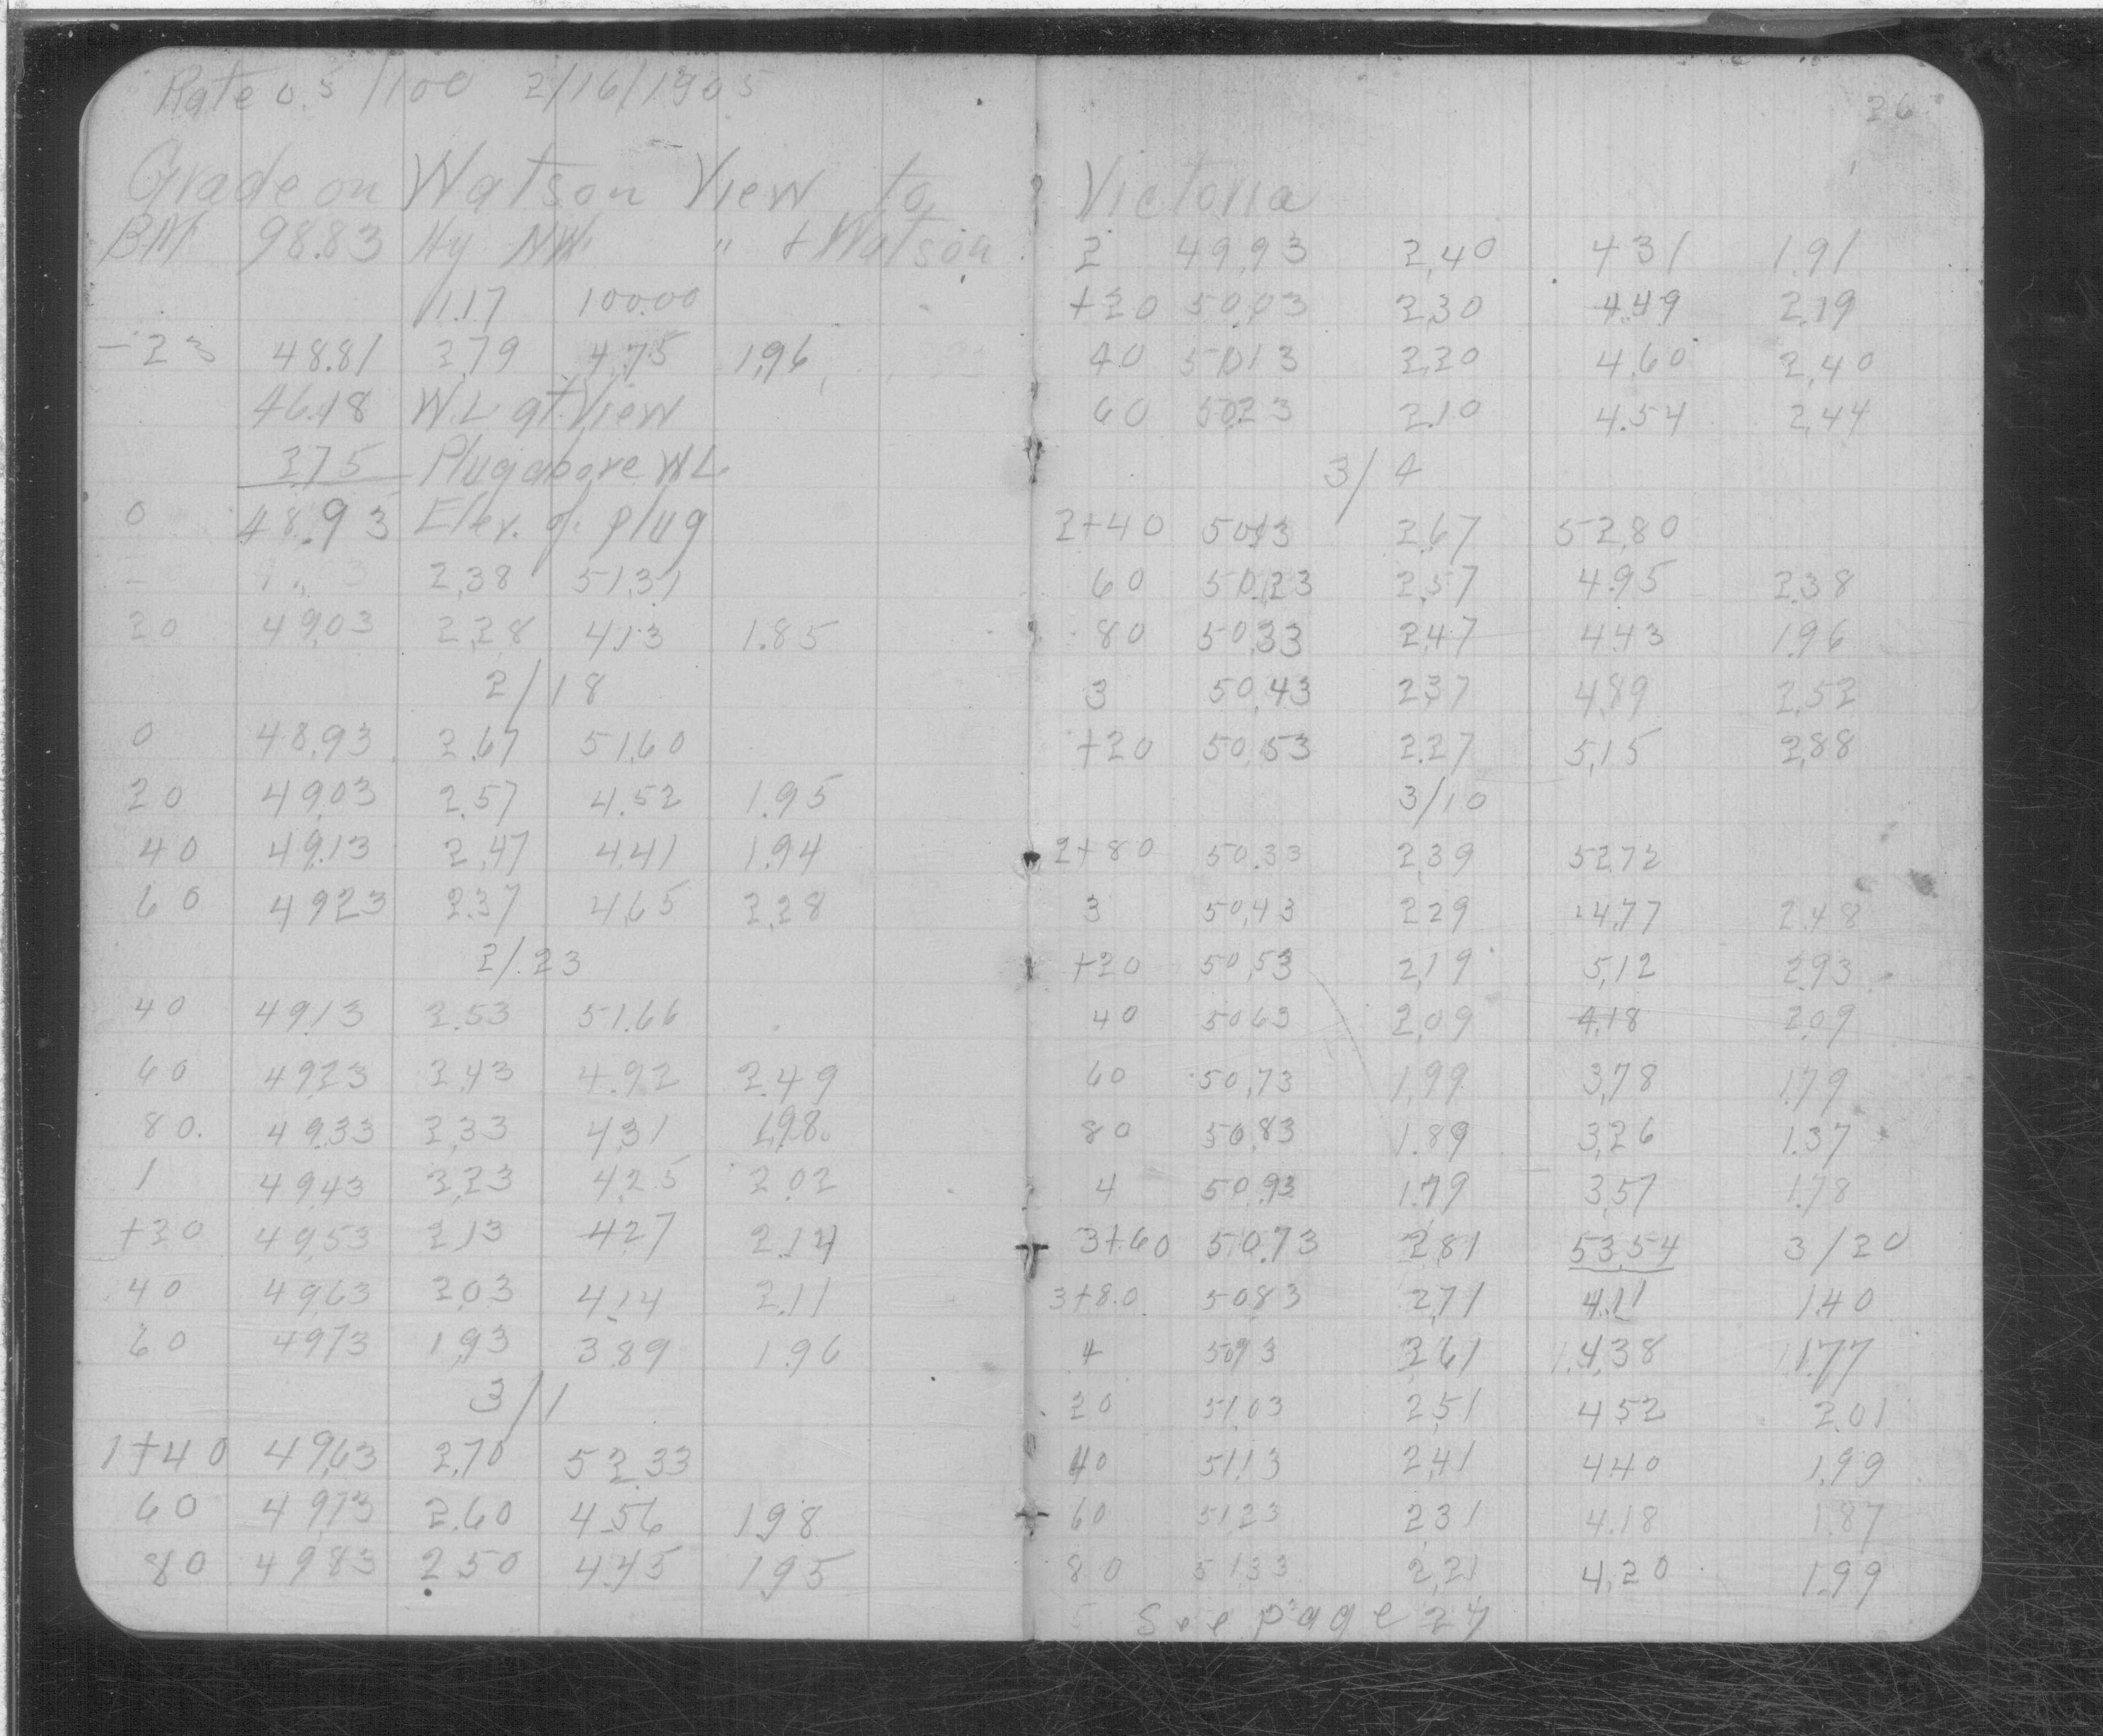 Rate 0.5/100 2/16/1905
Grade on Watson View to
BM 98.83 Hy NW " & Watson
1.17 100.00
-23 48.81 2.79 4.75 1.96
46.18 W.L at View
2.75 Plug above WL
0 48.93 Elev. of plug
2.38 51.31
20 49.03 2.28 4.13 1.85
2/18
0 48.93 2.67 51.60
20 49.03 2.57 4.52 1.95
40 49.13 2.47 4.41 1.94
60 49.23 2.37 4.65 2.28
2/23
40 49.13 2.53 51.66
60 49.23 2.43 4.92 2.49
80. 49.33 2.33 4.31 1.98
1 49.43 2.23 4.25 2.02
+20 49.53 2.13 4.27 2.14
40 49.63 2.03 4.14 2.11
60 49.73 1.93 3.89 1.96
3/1
1+40 49.63 2.70 52.33
60 49.73 2.60 4.56 1.98
80 49.83 2.50 4.45 1.95
26
Victoria
2 49.93 2.40 4.31 1.91
+20 50.03 2.30 4.49 2.19
40 50.13 2.20 4.60 2.40
60 50.23 2.10 4.54 2.44
3/4
2+40 50.13 2.67 52.80
60 50.23 2.57 4.95 2.38
80 50.33 2.47 4.43 1.96
3 50.43 2.37 4.89 2.52
+20 50.53 2.27 5.15 2.88
3/10
2+80 50.33 2.39 52.72
3 50.43 2.29 4.77 2.48
+20 50.53 2.19 5.12 2.93
40 50.63 2.09 4.18 2.09
60 50.73 1.99 3.78 1.79
80 50.83 1.89 3.26 1.37
4 50.93 1.79 3.57 1.78
3+60 50.73 2.81 53.54 3/20
3+80 50.83 2.71 4.11 1.40
4 50.93 2.61 4.38 1.77
20 51.03 2.51 4.52 2.01
40 51.13 2.41 4.40 1.99
60 51.23 2.31 4.18 1.87
80 51.33 2.21 4.20 1.99
5 See page 27